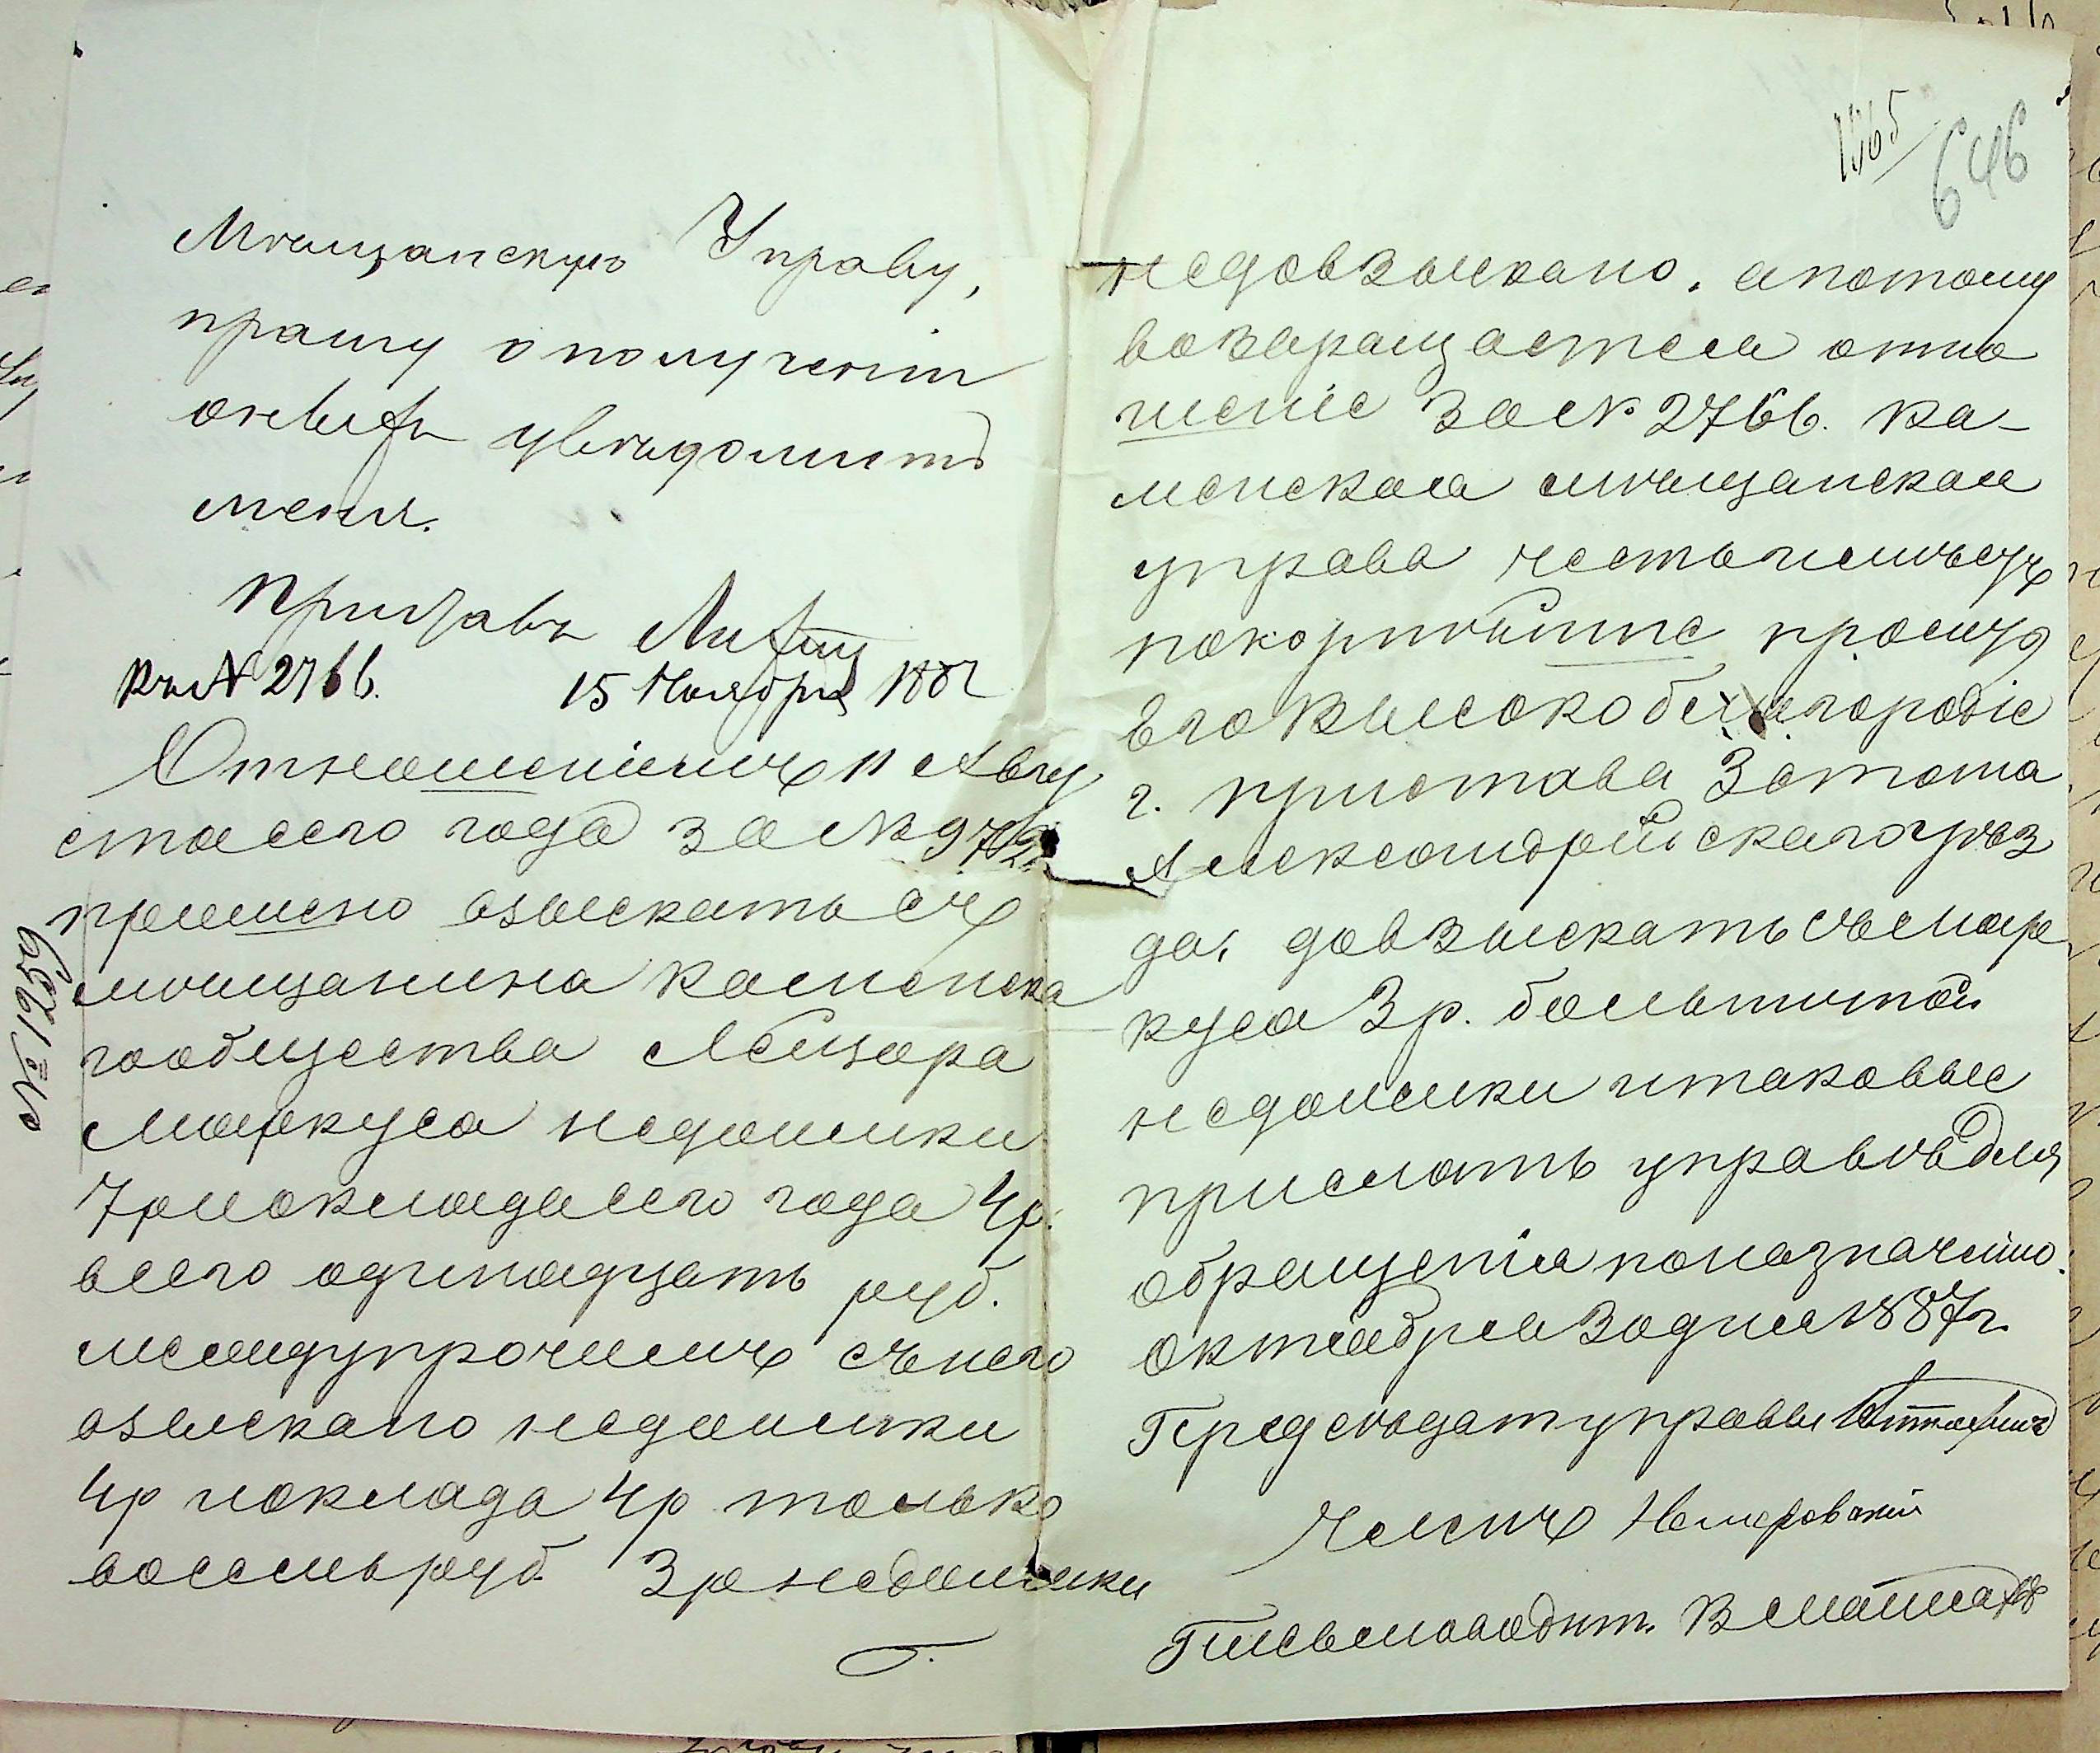 Мѣщанскую Управу,
прашу о полученіи
онѣхъ увѣдомить
меня.
Приставъ
Къ № 2766. 15 Ноября 188
Отношеніемъ 11 Авгу
ста сего года за № 972
прошено взыскать съ
мѣщанина Каменска
го общества Лейзера
Маркуса недоимки
7р и оклада сего года 4р.
всего одинадцать руб.
междупрочимъ съ него
взыскано недоимки
4р и оклада 4р только
восемь руб. 3р недоимки
№ 1239
1365
646
недовзыскано. а потому
возвращается отно
шеніе за № 2766. Ка-
менская мѣщанская
управа честь имѣетъ
покорнѣйше просить
Его Высокоблагородіе
г. пристава 3 стана
Александрійскаго уѣз
да, довзыскать съ Мар
куса 3р. больничной
недоимки и таковые
прислать управѣ для
обращенія по назначенію.
Октября 3 дня 1887 г.
Предсѣдат управы
Членъ
Письмоводит.